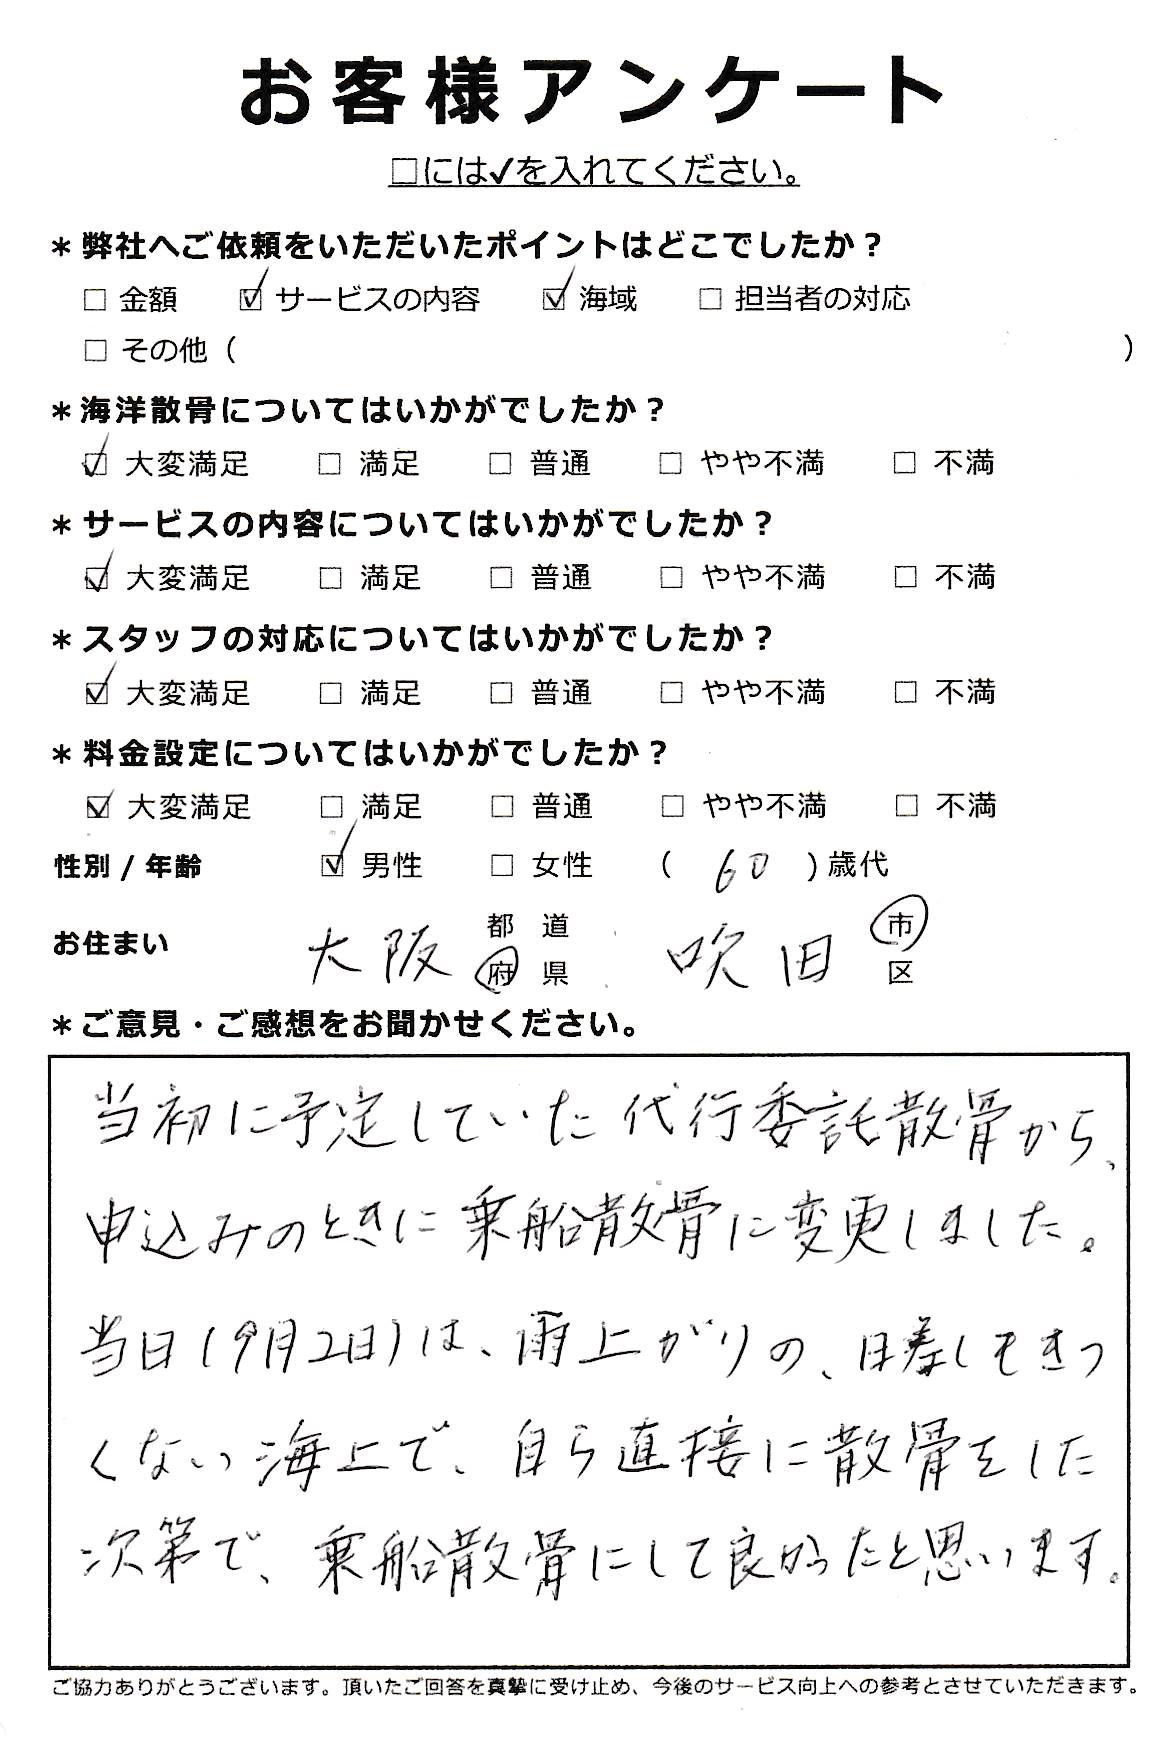 お客様アンケート
□には✓を入れてください。
＊弊社へご依頼をいただいたポイントはどこでしたか？
□ 金額 ☑ サービスの内容 ☑ 海域 □ 担当者の対応
□ その他（ ）
＊海洋散骨についてはいかがでしたか？
☑ 大変満足 □ 満足 □ 普通 □ やや不満 □ 不満
＊サービスの内容についてはいかがでしたか？
☑ 大変満足 □ 満足 □ 普通 □ やや不満 □ 不満
＊スタッフの対応についてはいかがでしたか？
☑ 大変満足 □ 満足 □ 普通 □ やや不満 □ 不満
＊料金設定についてはいかがでしたか？
☑ 大変満足 □ 満足 □ 普通 □ やや不満 □ 不満
性別 / 年齢 ☑ 男性 □ 女性 （ 60 ）歳代
お住まい 大阪 都 道 府 県 吹田 市 区
＊ご意見・ご感想をお聞かせください。
当初に予定していた代行委託散骨から、
申込みのときに乗船散骨に変更しました。
当日（9月2日）は、雨上がりの、日差しもきつ
くない海上で、自ら直接に散骨をした
次第で、乗船散骨にして良かったと思います。
ご協力ありがとうございます。頂いたご回答を真摯に受け止め、今後のサービス向上への参考とさせていただきます。